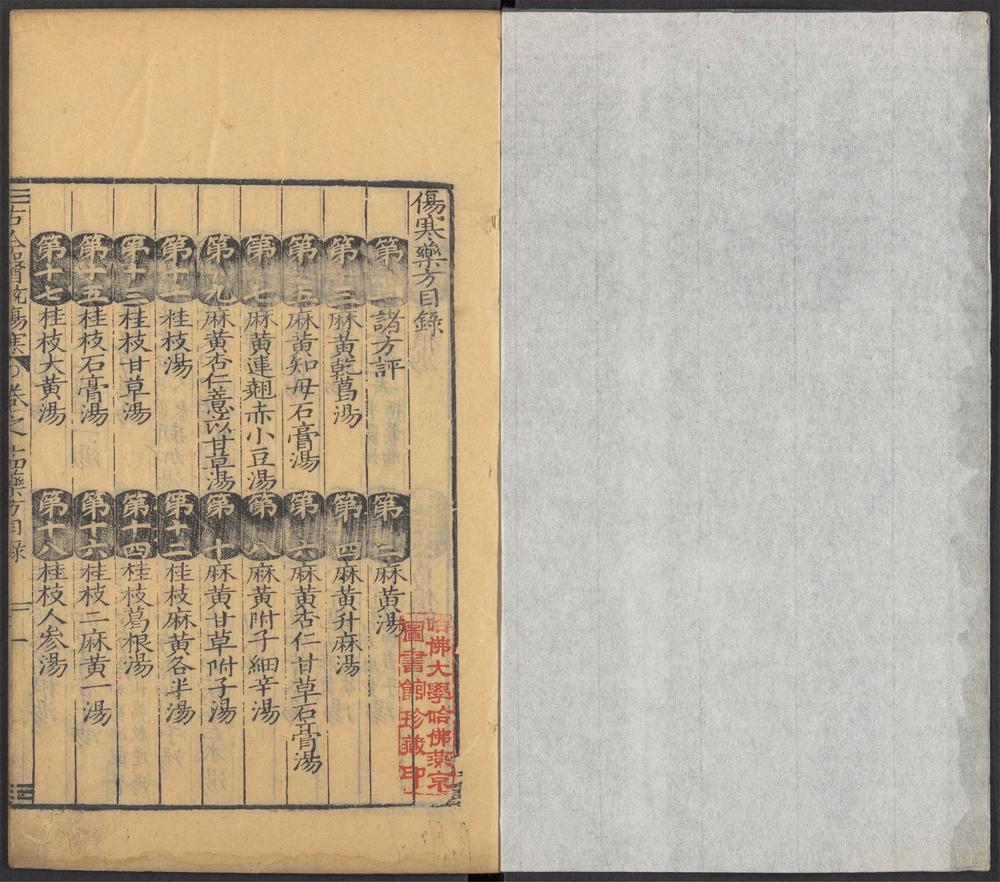 傷寒藥方目錄
第一諸方評
第二麻黃湯
第三麻黃乾葛湯
第四麻黃升麻湯
第五麻黃知母石膏湯
第六麻黃杏仁甘草石膏湯
第七麻黃連翹赤小豆湯
第八麻黃附子細辛湯
第九麻黃杏仁薏苡甘草湯
第十麻黃甘草附子湯
第十一桂枝湯
第十二桂枝麻黃各半湯
第十三桂枝甘草湯
第十四桂枝葛根湯
第十五桂枝石膏湯
第十六桂枝二麻黃一湯
第十七桂枝大黃湯
第十八桂枝人參湯
傷寒 卷之 藥方目錄 一
哈佛大學哈佛燕京
圖書館珍藏印